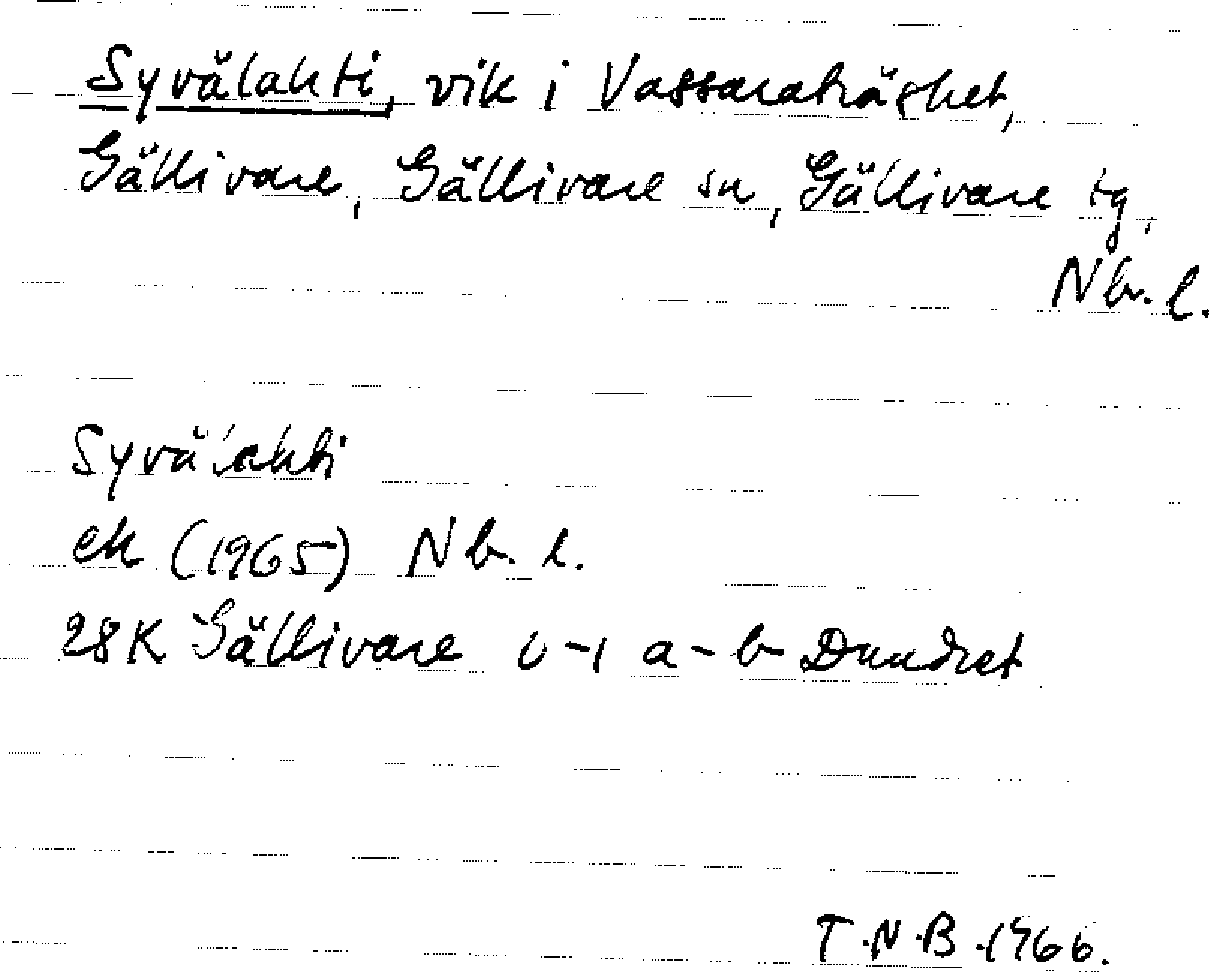 Syvälahti, vik i Vassaraträsket,
Gällivare, Gällivare sn, Gällivare tg,
Nb. l.
Syvälahti
ek (1965) Nb. l.
28K Gällivare 0-1 a-b Dundret
T.N.B. 1966.